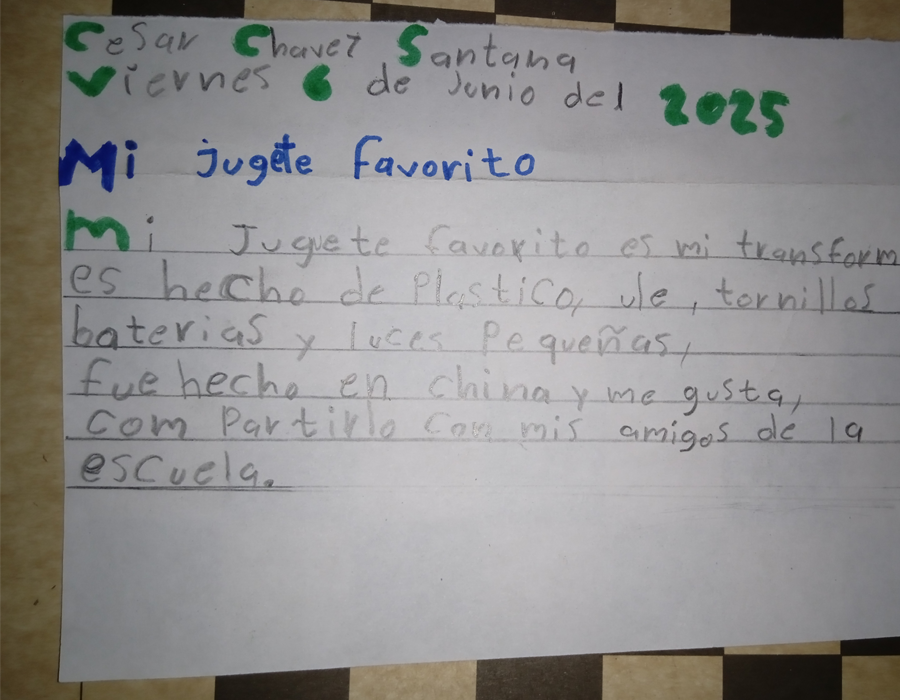 Cesar Chavez Santana
Viernes 6 de Junio del 2025
Mi jugete favorito
Mi Juguete favorito es mi transform
es hecho de Plastico, ule, tornillos
baterias y luces Pequeñas,
fue hecho en china y me gusta,
com Partirlo con mis amigos de la
escuela.